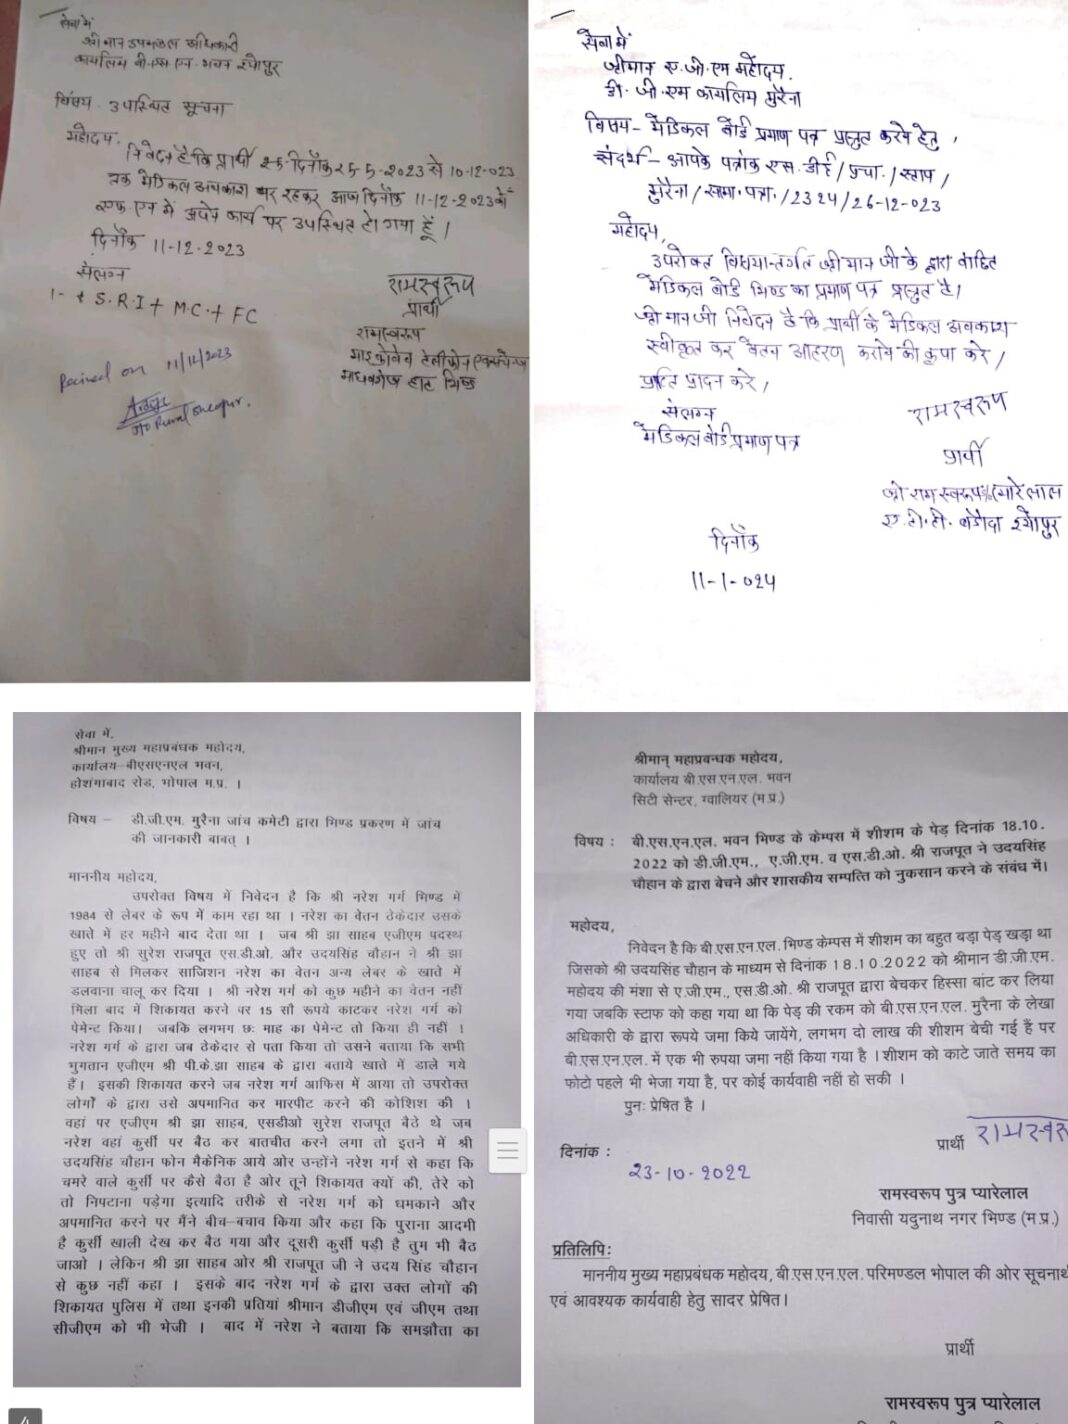 सेवा में
श्रीमान उपमण्डल अधिकारी
कार्यालय बी.एस.एन.भवन श्योपुर
विषय. उपस्थित सूचना
महोदय.
निवेदन है कि प्रार्थी दिनाँक 25-5-2023 से 10-12-023
तक मेडिकल अवकाश पर रहकर आज दिनाँक 11-12-2023 को
एफ एन में अपने कार्य पर उपस्थित हो गया हूँ।
दिनाँक 11-12-2023
संलग्न
1- + S.R.I + M.C. + FC
रामस्वरूप
प्रार्थी
रामस्वरूप
टेलीफोन एक्सचेन्ज
भिण्ड
Recived on 11/12/2023
सेवा में
श्रीमान ए.जी.एम महोदय.
डी.जी.एम कार्यालय मुरैना
विषय- मेडिकल बोर्ड प्रमाण पत्र प्रस्तुत करने हेतु,
संदर्भ- आपके पत्रांक एस.डीई/प्रचा./स्टाप/
मुरैना/सामा.पत्रा./2324/26-12-023
महोदय,
उपरोक्त विषयान्तर्गत श्रीमान जी के द्वारा वांछित
मेडिकल बोर्ड भिण्ड का प्रमाण पत्र प्रस्तुत है।
श्रीमान जी निवेदन है कि प्रार्थी के मेडिकल अवकाश
स्वीकृत कर वेतन आहरण कराने की कृपा करे,
प्रदान करे,
संलग्न
मेडिकल बोर्ड प्रमाण पत्र
रामस्वरूप
प्रार्थी
श्री रामस्वरूप प्यारेलाल
ए.टी.टी. बडौदा श्योपुर
दिनाँक
11-1-024
सेवा में,
श्रीमान मुख्य महाप्रबंधक महोदय,
कार्यालय-बीएसएनएल भवन,
होशंगाबाद रोड, भोपाल म.प्र. ।
विषय – डी.जी.एम. मुरैना जांच कमेटी द्वारा भिण्ड प्रकरण में जांच
की जानकारी बाबत् ।
माननीय महोदय,
उपरोक्त विषय में निवेदन है कि श्री नरेश गर्ग भिण्ड में
1984 से लेबर के रूप में काम रहा था । नरेश का वेतन ठेकेदार उसके
खाते में हर महीने बाद देता था । जब श्री झा साहब एजीएम पदस्थ
हुए तो श्री सुरेश राजपूत एस.डी.ओ. और उदयसिंह चौहान ने श्री झा
साहब से मिलकर साजिशन नरेश का वेतन अन्य लेबर के खाते में
डलवाना चालू कर दिया । श्री नरेश गर्ग को कुछ महीने का वेतन नहीं
मिला बाद में शिकायत करने पर 15 सौ रूपये काटकर नरेश गर्ग को
पेमेन्ट किया। जबकि लगभग छः माह का पेमेन्ट तो किया ही नहीं ।
नरेश गर्ग के द्वारा जब ठेकेदार से पता किया तो उसने बताया कि सभी
भुगतान एजीएम श्री पी.के.झा साहब के द्वारा बताये खाते में डाले गये
हैं। इसकी शिकायत करने जब नरेश गर्ग आफिस में आया तो उपरोक्त
लोगों के द्वारा उसे अपमानित कर मारपीट करने की कोशिश की ।
वहां पर एजीएम श्री झा साहब, एसडीओ सुरेश राजपूत बैठे थे जब
नरेश वहां कुर्सी पर बैठ कर बातचीत करने लगा तो इतने में श्री
उदयसिंह चौहान फोन मैकेनिक आये ओर उन्होंने नरेश गर्ग से कहा कि
चमरे वाले कुर्सी पर कैसे बैठा है ओर तूने शिकायत क्यों की, तेरे को
तो निपटाना पड़ेगा इत्यादि तरीके से नरेश गर्ग को धमकाने और
अपमानित करने पर मैंने बीच–बचाव किया और कहा कि पुराना आदमी
है कुर्सी खाली देख कर बैठ गया और दूसरी कुर्सी पड़ी है तुम भी बैठ
जाओ । लेकिन श्री झा साहब ओर श्री राजपूत जी ने उदय सिंह चौहान
से कुछ नहीं कहा । इसके बाद नरेश गर्ग के द्वारा उक्त लोगों की
शिकायत पुलिस में तथा इनकी प्रतियां श्रीमान डीजीएम एवं जीएम तथा
सीजीएम को भी भेजी । बाद में नरेश ने बताया कि समझौता का
4
श्रीमान् महाप्रबन्धक महोदय,
कार्यालय बी.एस.एन.एल. भवन
सिटी सेन्टर, ग्वालियर (म.प्र.)
विषय : बी.एस.एन.एल. भवन भिण्ड के केम्पस में शीशम के पेड़ दिनांक 18.10.
2022 को डी.जी.एम., ए.जी.एम. व एस.डी.ओ. श्री राजपूत ने उदयसिंह
चौहान के द्वारा बेचने और शासकीय सम्पत्ति को नुकसान करने के संबंध में।
महोदय,
निवेदन है कि बी.एस.एन.एल. भिण्ड केम्पस में शीशम का बहुत बड़ा पेड़ खड़ा था
जिसको श्री उदयसिंह चौहान के माध्यम से दिनांक 18.10.2022 को श्रीमान डी.जी.एम.
महोदय की मंशा से ए.जी.एम., एस.डी.ओ. श्री राजपूत द्वारा बेचकर हिस्सा बांट कर लिया
गया जबकि स्टाफ को कहा गया था कि पेड़ की रकम को बी.एस.एन.एल. मुरैना के लेखा
अधिकारी के द्वारा रूपये जमा किये जायेंगे, लगभग दो लाख की शीशम बेची गई हैं पर
बी.एस.एन.एल. में एक भी रुपया जमा नहीं किया गया है । शीशम को काटे जाते समय का
फोटो पहले भी भेजा गया है, पर कोई कार्यवाही नहीं हो सकी ।
पुनः प्रेषित है ।
प्रार्थी रामस्वरू
दिनांक :
23-10-2022
रामस्वरूप पुत्र प्यारेलाल
निवासी यदुनाथ नगर भिण्ड (म.प्र.)
प्रतिलिपिः
माननीय मुख्य महाप्रबंधक महोदय, बी.एस.एन.एल. परिमण्डल भोपाल की ओर सूचनार्थ
एवं आवश्यक कार्यवाही हेतु सादर प्रेषित।
प्रार्थी
रामस्वरूप पुत्र प्यारेलाल